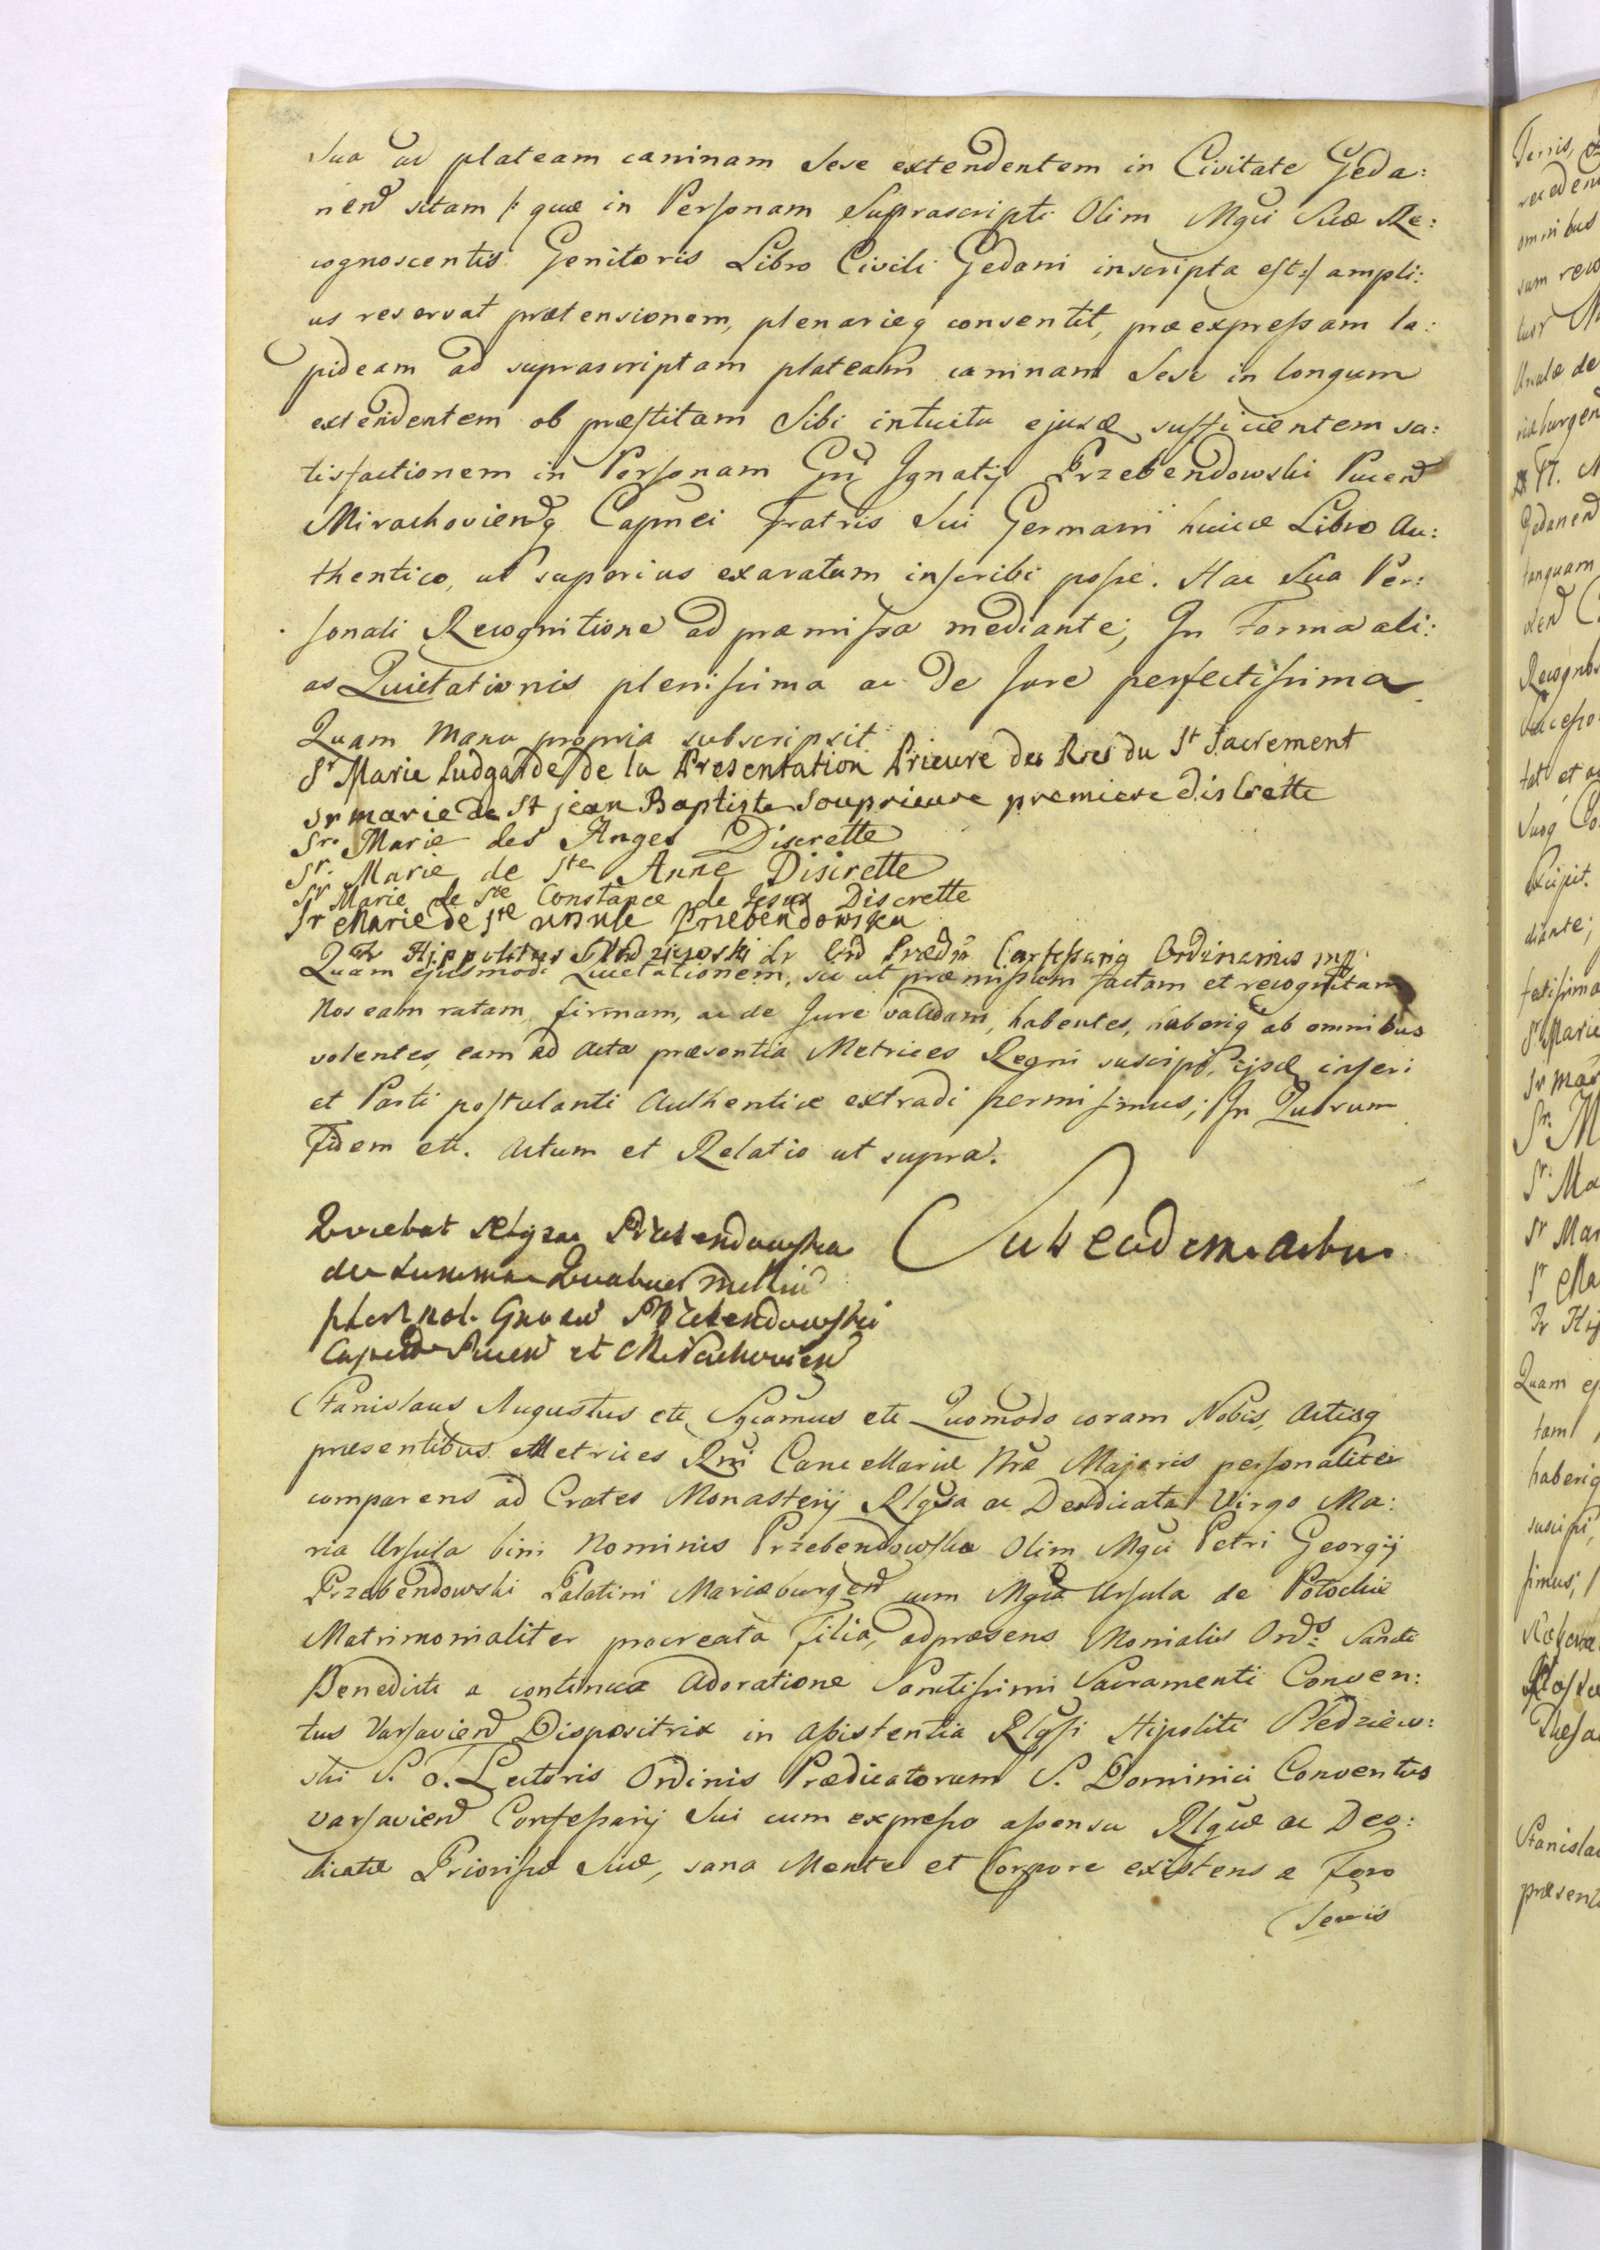 Sua ad plateam caninam Sese extendentem in Civitate Geda:
nen sitam /: quæ in Personam Suprascripti Olim Mgci Suæ Re:
cognoscentis Genitoris Libro Civili Gedani inscripta est :/ ampli:
us reservat prætensionem, plenarieq consentit, præexpressam la:
pideam ad suprascriptam plateam caninam Sese in longum
extendentem ob præstitam Sibi intuitu ejusd sufficientem sa:
tisfactionem in Personam Gsi Ignatij Przebendowski Pucen
Mirachovienq Capnei Fratris Sui Germani huicce Libro Au:
thentico, ut superius exaratum inscribi posse. Hac Sua Per:
sonali Recognitione ad præmissa mediante; In Forma ali:
as Quietationis plenissima ac de Jure perfectissima
Quam Manu propria subscripsit
Sr Marie Ludgarde de la Presentation Prieure des Rses du St Sacrement
sr marie de St jean Baptiste Souprieure premiere discrette
Sr. Marie des Anges Discrette
Sr. Marie de Ste Anne Discrette
Sr Marie de Ste Constance de Jesus Discrette
Sr Marie de Ste ursule Przebendowska
Fr Hippolitus Ord Præd Confessariq Ordinarius mp
Quam ejusmodi Quietationem, sic ut præmissum factam et recognitam
Nos eam ratam, firmam, ac de Jure validam, habentes, haberiq ab omnibus
volentes, eam ad Acta præsentia Metrices Regni suscipi, ijsd inseri
et Parti postulanti Authentice extradi permisimus; In Quorum
Fidem ett. Actum et Relatio ut supra.
Quietat Relgsa Przebendowska
de Summa Quatuor Millium
Gnosum Przebendowski
Capneum Pucen et Mirachovien
Sub eodem Actu
Stanislaus Augustus ett Sgcamus ett Quomodo coram Nobis, Actisq
præsentibus Metrices Rni Cancellariæ Nræ Majoris personaliter
comparens ad Crates Monasterij Rlgsa ac Deodicata Virgo Ma:
ria Ursula bini Nominis Przebendowska Olim Mgci Petri Georgij
Przebendowski Palatini Mariæburgen cum Mgca Ursula de Potockie
Matrimonialiter procreata Filia, adpræsens Monialis Ords Sancti
Benedicti a continua Adoratione Sanctissimi Sacramenti Conven:
tus Varsavien Dispositrix in assistentia Rlgsi Hipoliti Pledziew:
ski S. T. Lectoris Ordinis Prædicatorum S. Dominici Conventus
Varsavien Confessarij Sui cum expresso assensu Rlgsæ ac Deo:
dicatæ Priorissæ Suæ, sana Mente et Corpore existens a Foro
Terris